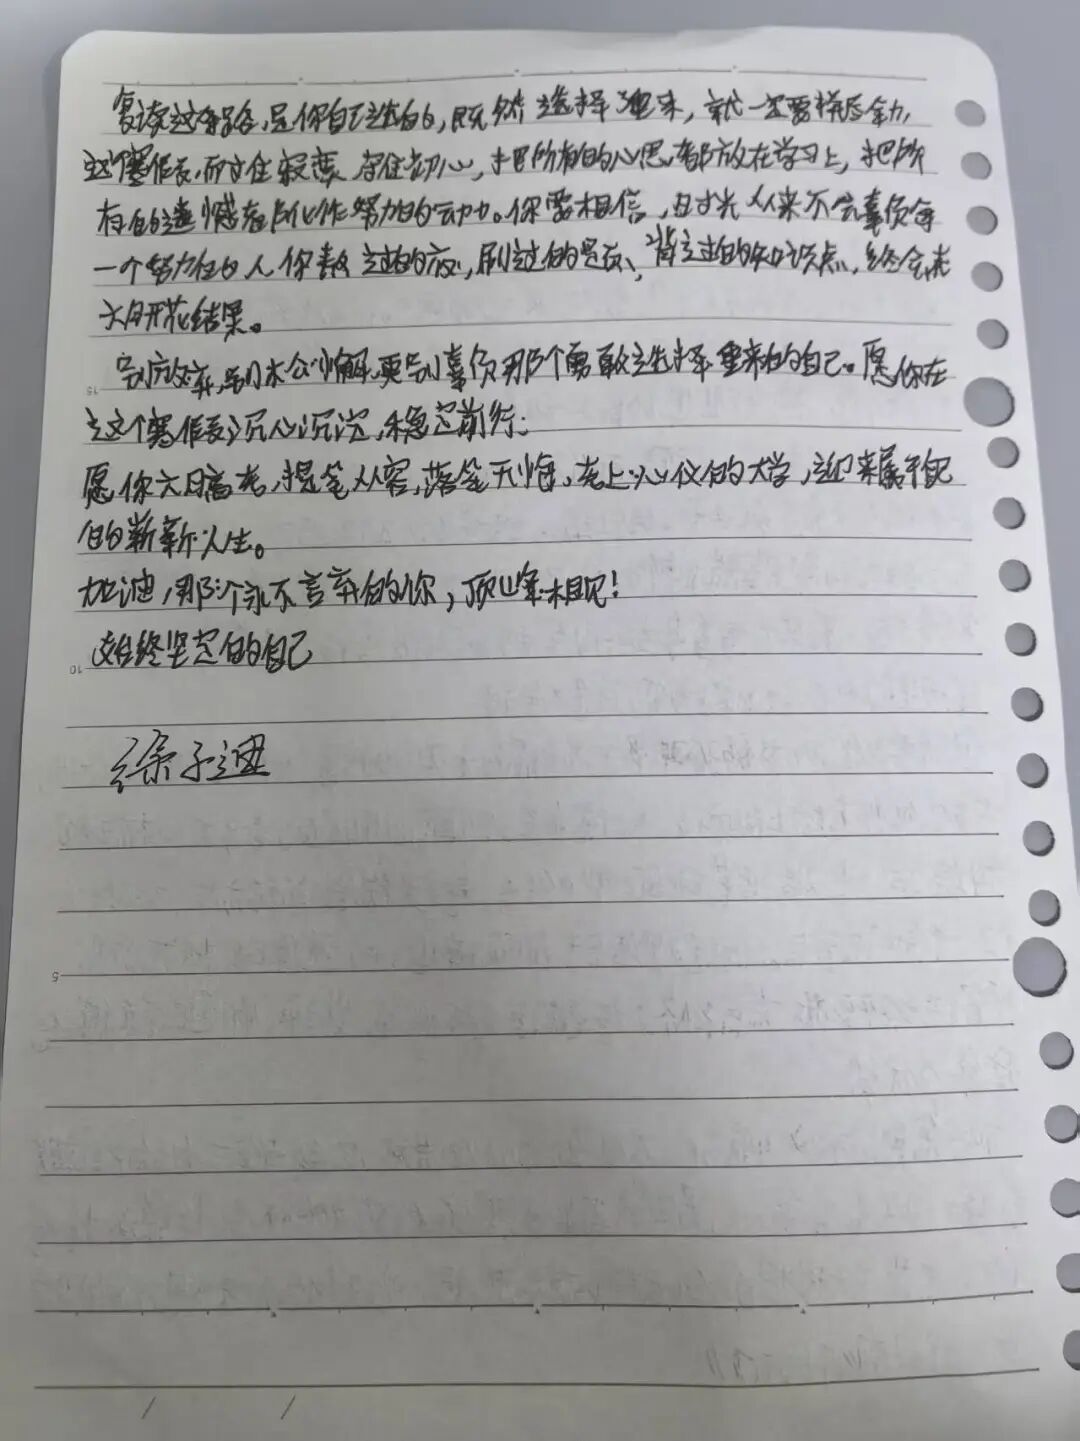 复读这条路,是你自己选的,既然选择了重来,就一定要拼尽全力,
这个寒假,耐住寂寞、守住初心,把所有的心思都放在学习上,把所
有的遗憾都化作努力的动力。你要相信,时光从来不会辜负每
一个努力的人你熬过的夜,刷过的题,背过的知识点,终会在
六月开花结果。
别放弃,别松懈,更别辜负那个勇敢选择重来的自己。愿你在
这个寒假沉心沉淀,稳定前行;
愿你六月高考,提笔从容,落笔无悔,考上心仪的大学,迎来属于
的崭新人生。
加油,那个永不言弃的你,顶峰相见!
始终坚定的自己
子迪
15
10
5